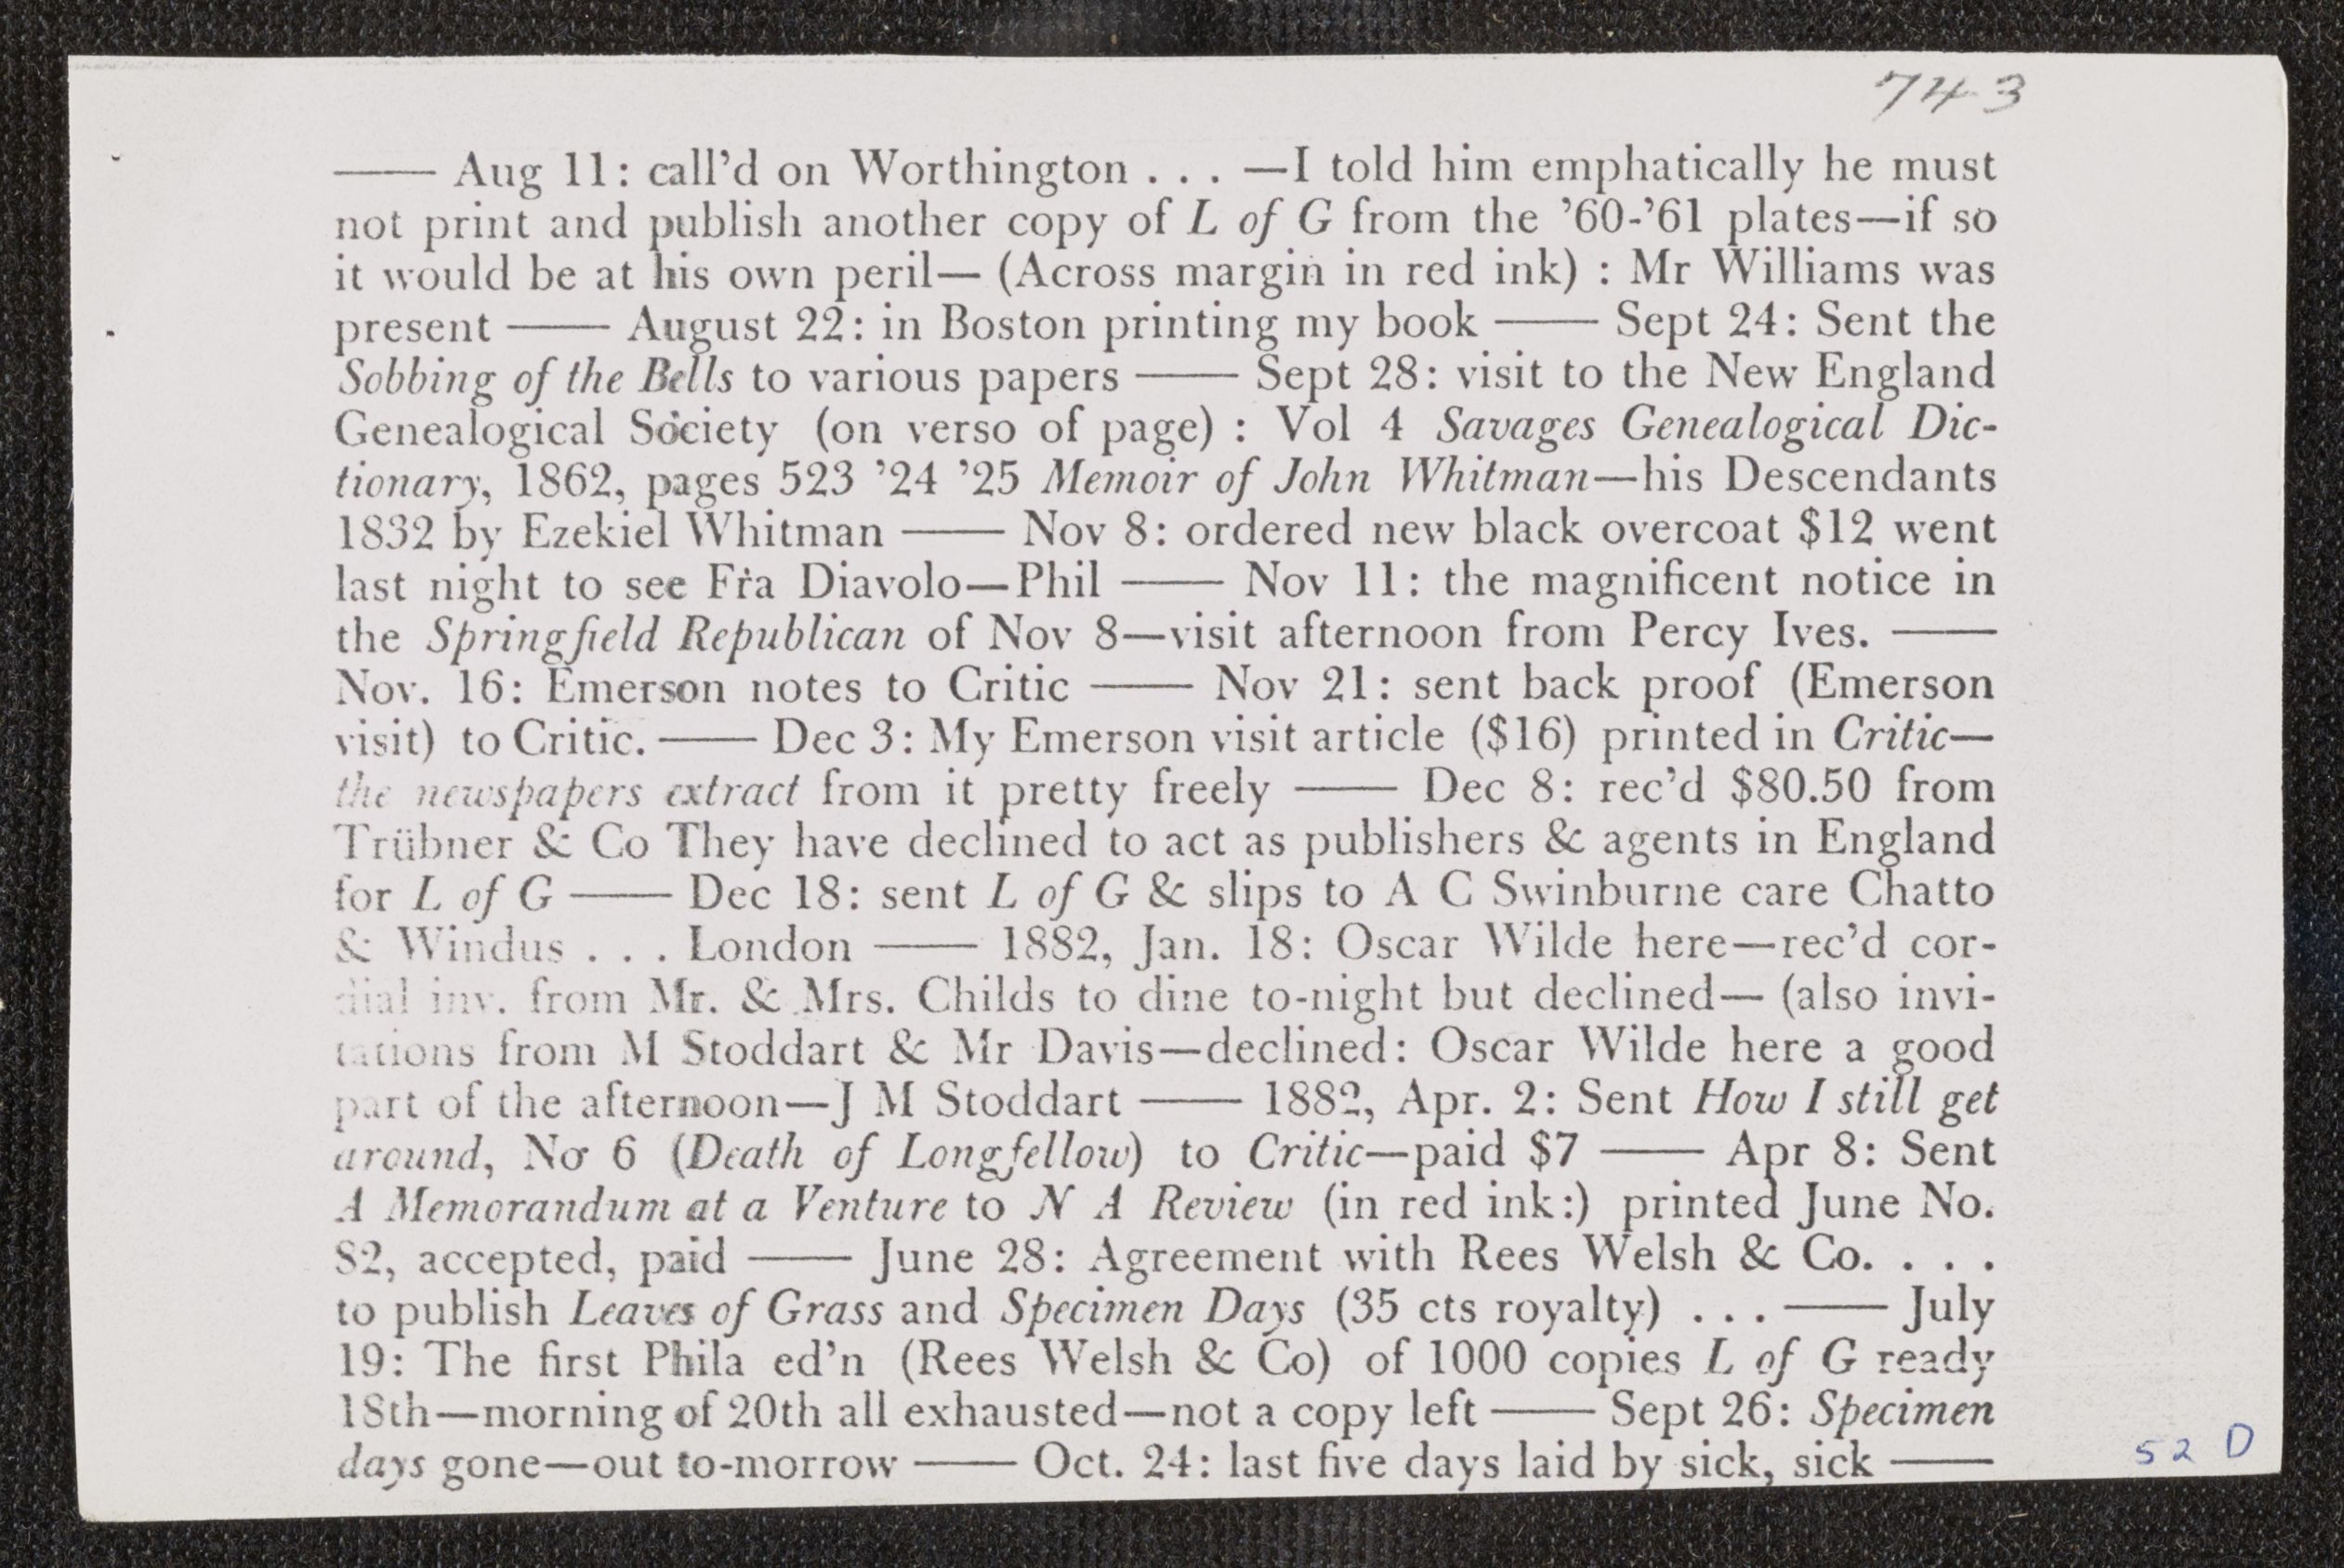 743
—— Aug 11: call’d on Worthington . . . —I told him emphatically he must
not print and publish another copy of L of G from the ’60-’61 plates—if so
it would be at his own peril— (Across margin in red ink) : Mr Williams was
present —— August 22: in Boston printing my book —— Sept 24: Sent the
Sobbing of the Bells to various papers —— Sept 28: visit to the New England
Genealogical Society (on verso of page) : Vol 4 Savages Genealogical Dic-
tionary, 1862, pages 523 ’24 ’25 Memoir of John Whitman—his Descendants
1832 by Ezekiel Whitman —— Nov 8: ordered new black overcoat $12 went
last night to see Fra Diavolo—Phil —— Nov 11: the magnificent notice in
the Springfield Republican of Nov 8—visit afternoon from Percy Ives. ——
Nov. 16: Emerson notes to Critic —— Nov 21: sent back proof (Emerson
visit) to Critic. —— Dec 3: My Emerson visit article ($16) printed in Critic—
the newspapers extract from it pretty freely —— Dec 8: rec’d $80.50 from
Trübner & Co They have declined to act as publishers & agents in England
for L of G —— Dec 18: sent L of G & slips to A C Swinburne care Chatto
& Windus . . . London —— 1882, Jan. 18: Oscar Wilde here—rec’d cor-
dial inv. from Mr. & Mrs. Childs to dine to-night but declined— (also invi-
tations from M Stoddart & Mr Davis—declined: Oscar Wilde here a good
part of the afternoon—J M Stoddart —— 1882, Apr. 2: Sent How I still get
around, No 6 (Death of Longfellow) to Critic—paid $7 —— Apr 8: Sent
A Memorandum at a Venture to N A Review (in red ink:) printed June No.
82, accepted, paid —— June 28: Agreement with Rees Welsh & Co. . . .
to publish Leaves of Grass and Specimen Days (35 cts royalty) . . . —— July
19: The first Phila ed’n (Rees Welsh & Co) of 1000 copies L of G ready
18th—morning of 20th all exhausted—not a copy left —— Sept 26: Specimen
days gone—out to-morrow —— Oct. 24: last five days laid by sick, sick ——
52 D